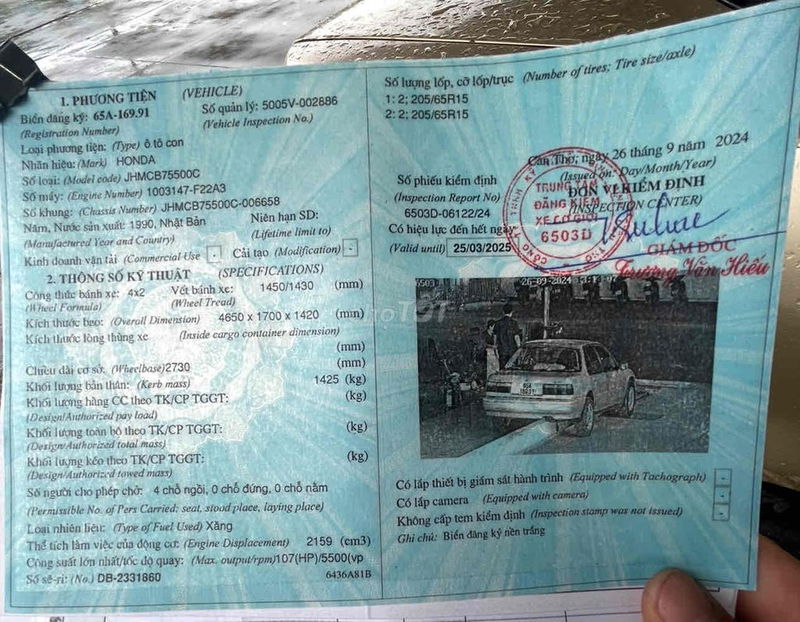 1. PHƯƠNG TIỆN (VEHICLE)
Biển đăng ký: 65A-169.91 Số quản lý: 5005V-002686
(Registration Number) (Vehicle Inspection No.)
Loại phương tiện: (Type) ô tô con
Nhãn hiệu: (Mark) HONDA
Số loại: (Model code) JHMCB75500C
Số máy: (Engine Number) 1003147-F22A3
Số khung: (Chassis Number) JHMCB75500C-006658
Năm, Nước sản xuất: 1990, Nhật Bản Niên hạn SD:
(Manufactured Year and Country) (Lifetime limit to)
Kinh doanh vận tải (Commercial Use) Cải tạo (Modification)
2. THÔNG SỐ KỸ THUẬT (SPECIFICATIONS)
Công thức bánh xe: 4x2 Vết bánh xe: 1450/1430 (mm)
(Wheel Formula) (Wheel Tread)
Kích thước bao: (Overall Dimension) 4650 x 1700 x 1420 (mm)
Kích thước lòng thùng xe (Inside cargo container dimension)
(mm)
Chiều dài cơ sở: (Wheelbase) 2730 (mm)
Khối lượng bản thân: (Kerb mass) 1425 (kg)
Khối lượng hàng CC theo TK/CP TGGT: (kg)
(Design/Authorized pay load)
Khối lượng toàn bộ theo TK/CP TGGT: (kg)
(Design/Authorized total mass)
Khối lượng kéo theo TK/CP TGGT: (kg)
(Design/Authorized towed mass)
Số người cho phép chở: 4 chỗ ngồi, 0 chỗ đứng, 0 chỗ nằm
(Permissible No. of Pers Carried: seat, stood place, laying place)
Loại nhiên liệu: (Type of Fuel Used) Xăng
Thể tích làm việc của động cơ: (Engine Displacement) 2159 (cm3)
Công suất lớn nhất/tốc độ quay: (Max. output/rpm) 107(HP)/5500(vp
Số sê-ri: (No.) DB-2331860 6436A81B
Số lượng lốp, cỡ lốp/trục (Number of tires; Tire size/axle)
1: 2; 205/65R15
2: 2; 205/65R15
Cần Thơ, ngày 26 tháng 9 năm 2024
(Issued on: Day/Month/Year)
Số phiếu kiểm định ĐƠN VỊ KIỂM ĐỊNH
(Inspection Report No) (INSPECTION CENTER)
6503D-06122/24
Có hiệu lực đến hết ngày
(Valid until) 25/03/2025
TRUNG TÂM
ĐĂNG KIỂM
XE CƠ GIỚI
6503D
GIÁM ĐỐC
Trương Văn Hiếu
6503 26-09-2024
65A
16991
Có lắp thiết bị giám sát hành trình (Equipped with Tachograph)
Có lắp camera (Equipped with camera)
Không cấp tem kiểm định (Inspection stamp was not issued)
Ghi chú: Biển đăng ký nền trắng